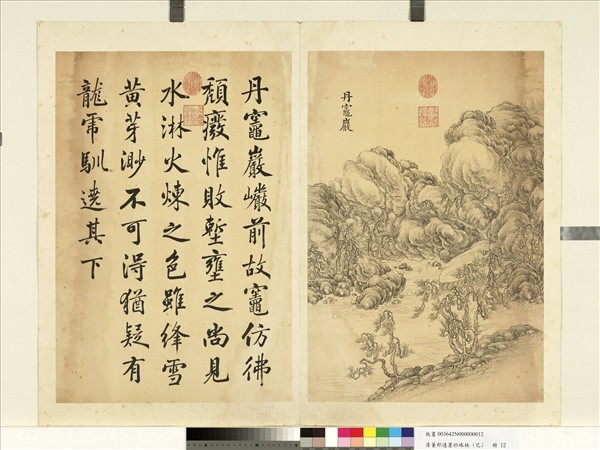 丹竈巖
丹竈巖巗前故竈仿彿
頹廢惟敗塹壅之尚見
水淋火煉之色雖絳雪
黃芽渺不可得猶疑有
龍虎馴遶其下
故畫 003642N000000012
清董邦達墨妙珠林（巳） 冊 12